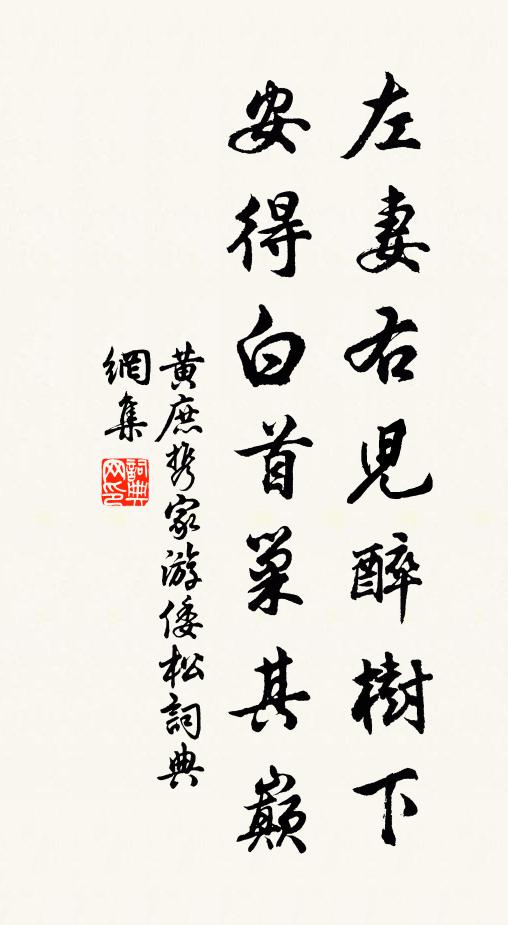 左妻右児醉樹下
安得白首巢其巔
黃庶携家游倭松詞典
網集
詞典
网印